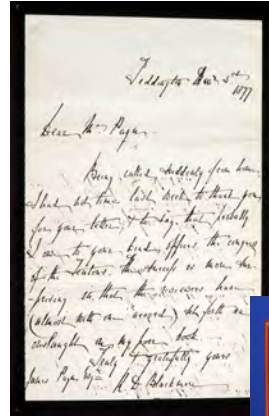 Teddington Novr 5th
1877
Dear Mr Payn
Being called suddenly from home,
I had not time last week to thank you
for your letter, & to say that probably
I owe to your kind offices, the conquest
of the Teutons. The success is more sur-
prising in that the reviewers have
(almost with one accord) set forth an
onslaught on my poor book.
Truly & gratefully yours
James Payn Esqre R. D. Blackmore